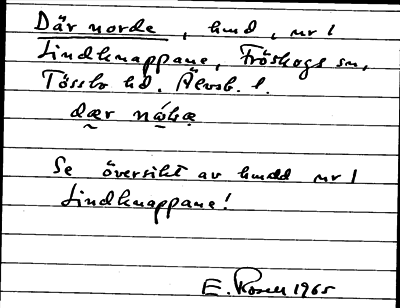 Där norde, hmd, nr 1
Lindknappane, Fröskogs sn,
Tössbo hd. Älvsb. l.
dær nóḥæ
Se översikt av hmdd nr 1
Lindknappane!
E. Rosen 1965